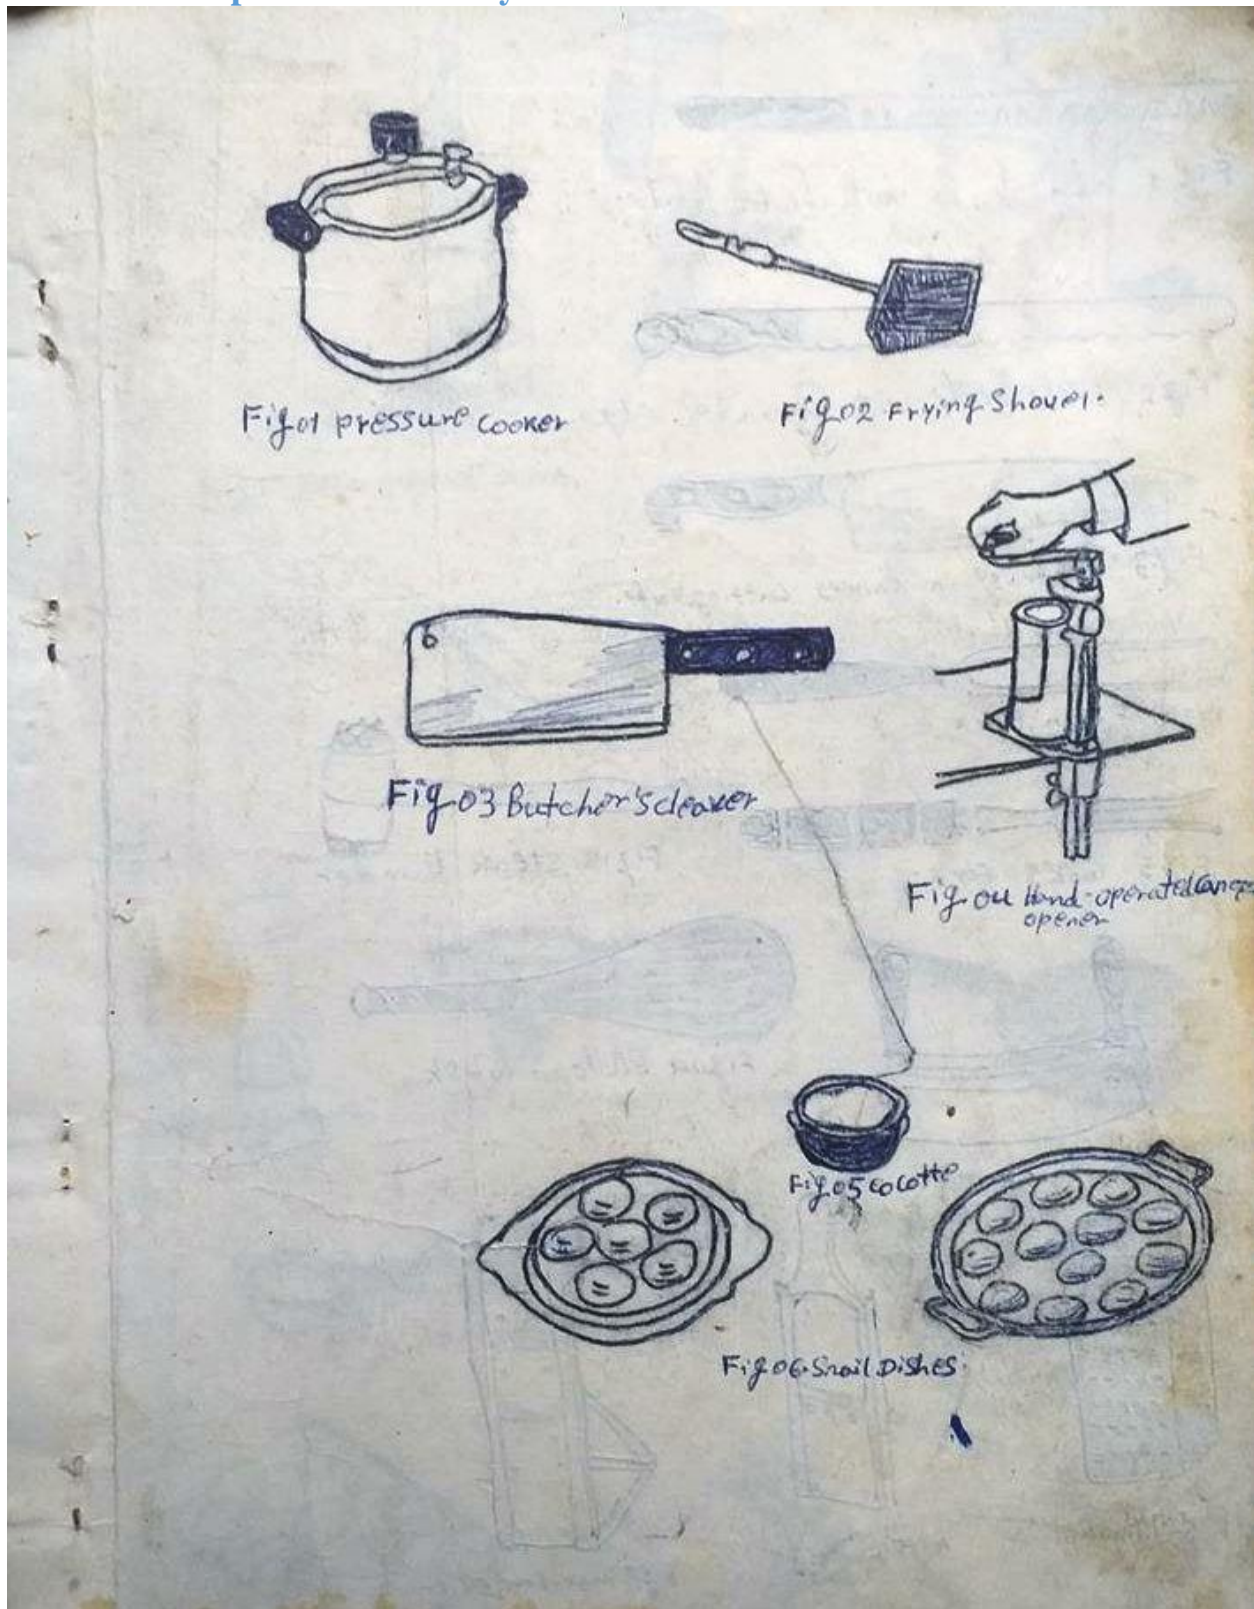 Fig 01 pressure cooker
Fig 02 Frying Shovel.
Fig 03 Butcher's cleaver
Fig. 04 Hand-operated Can
opener
Fig. 05 cocotte
Fig 06. Snail Dishes.